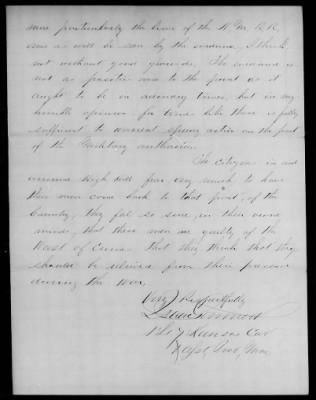 more particularly the line of the R.R.
and as will be seen by the evidence, I think
not without good grounds. The evidence is
not as positive and to the point as it
ought to be on ordinary times, but in my
humble opinion for time like these is fully
sufficient to action on the part
of the Military authorities.
The citizens in and
very much to have
these men come back to that part of the
Country, they feel so sure, in their own
minds, that these men are guilty of the
that they think that they
should be relieved from their presence
during the War,
Very Respectfully
Kansas Cav